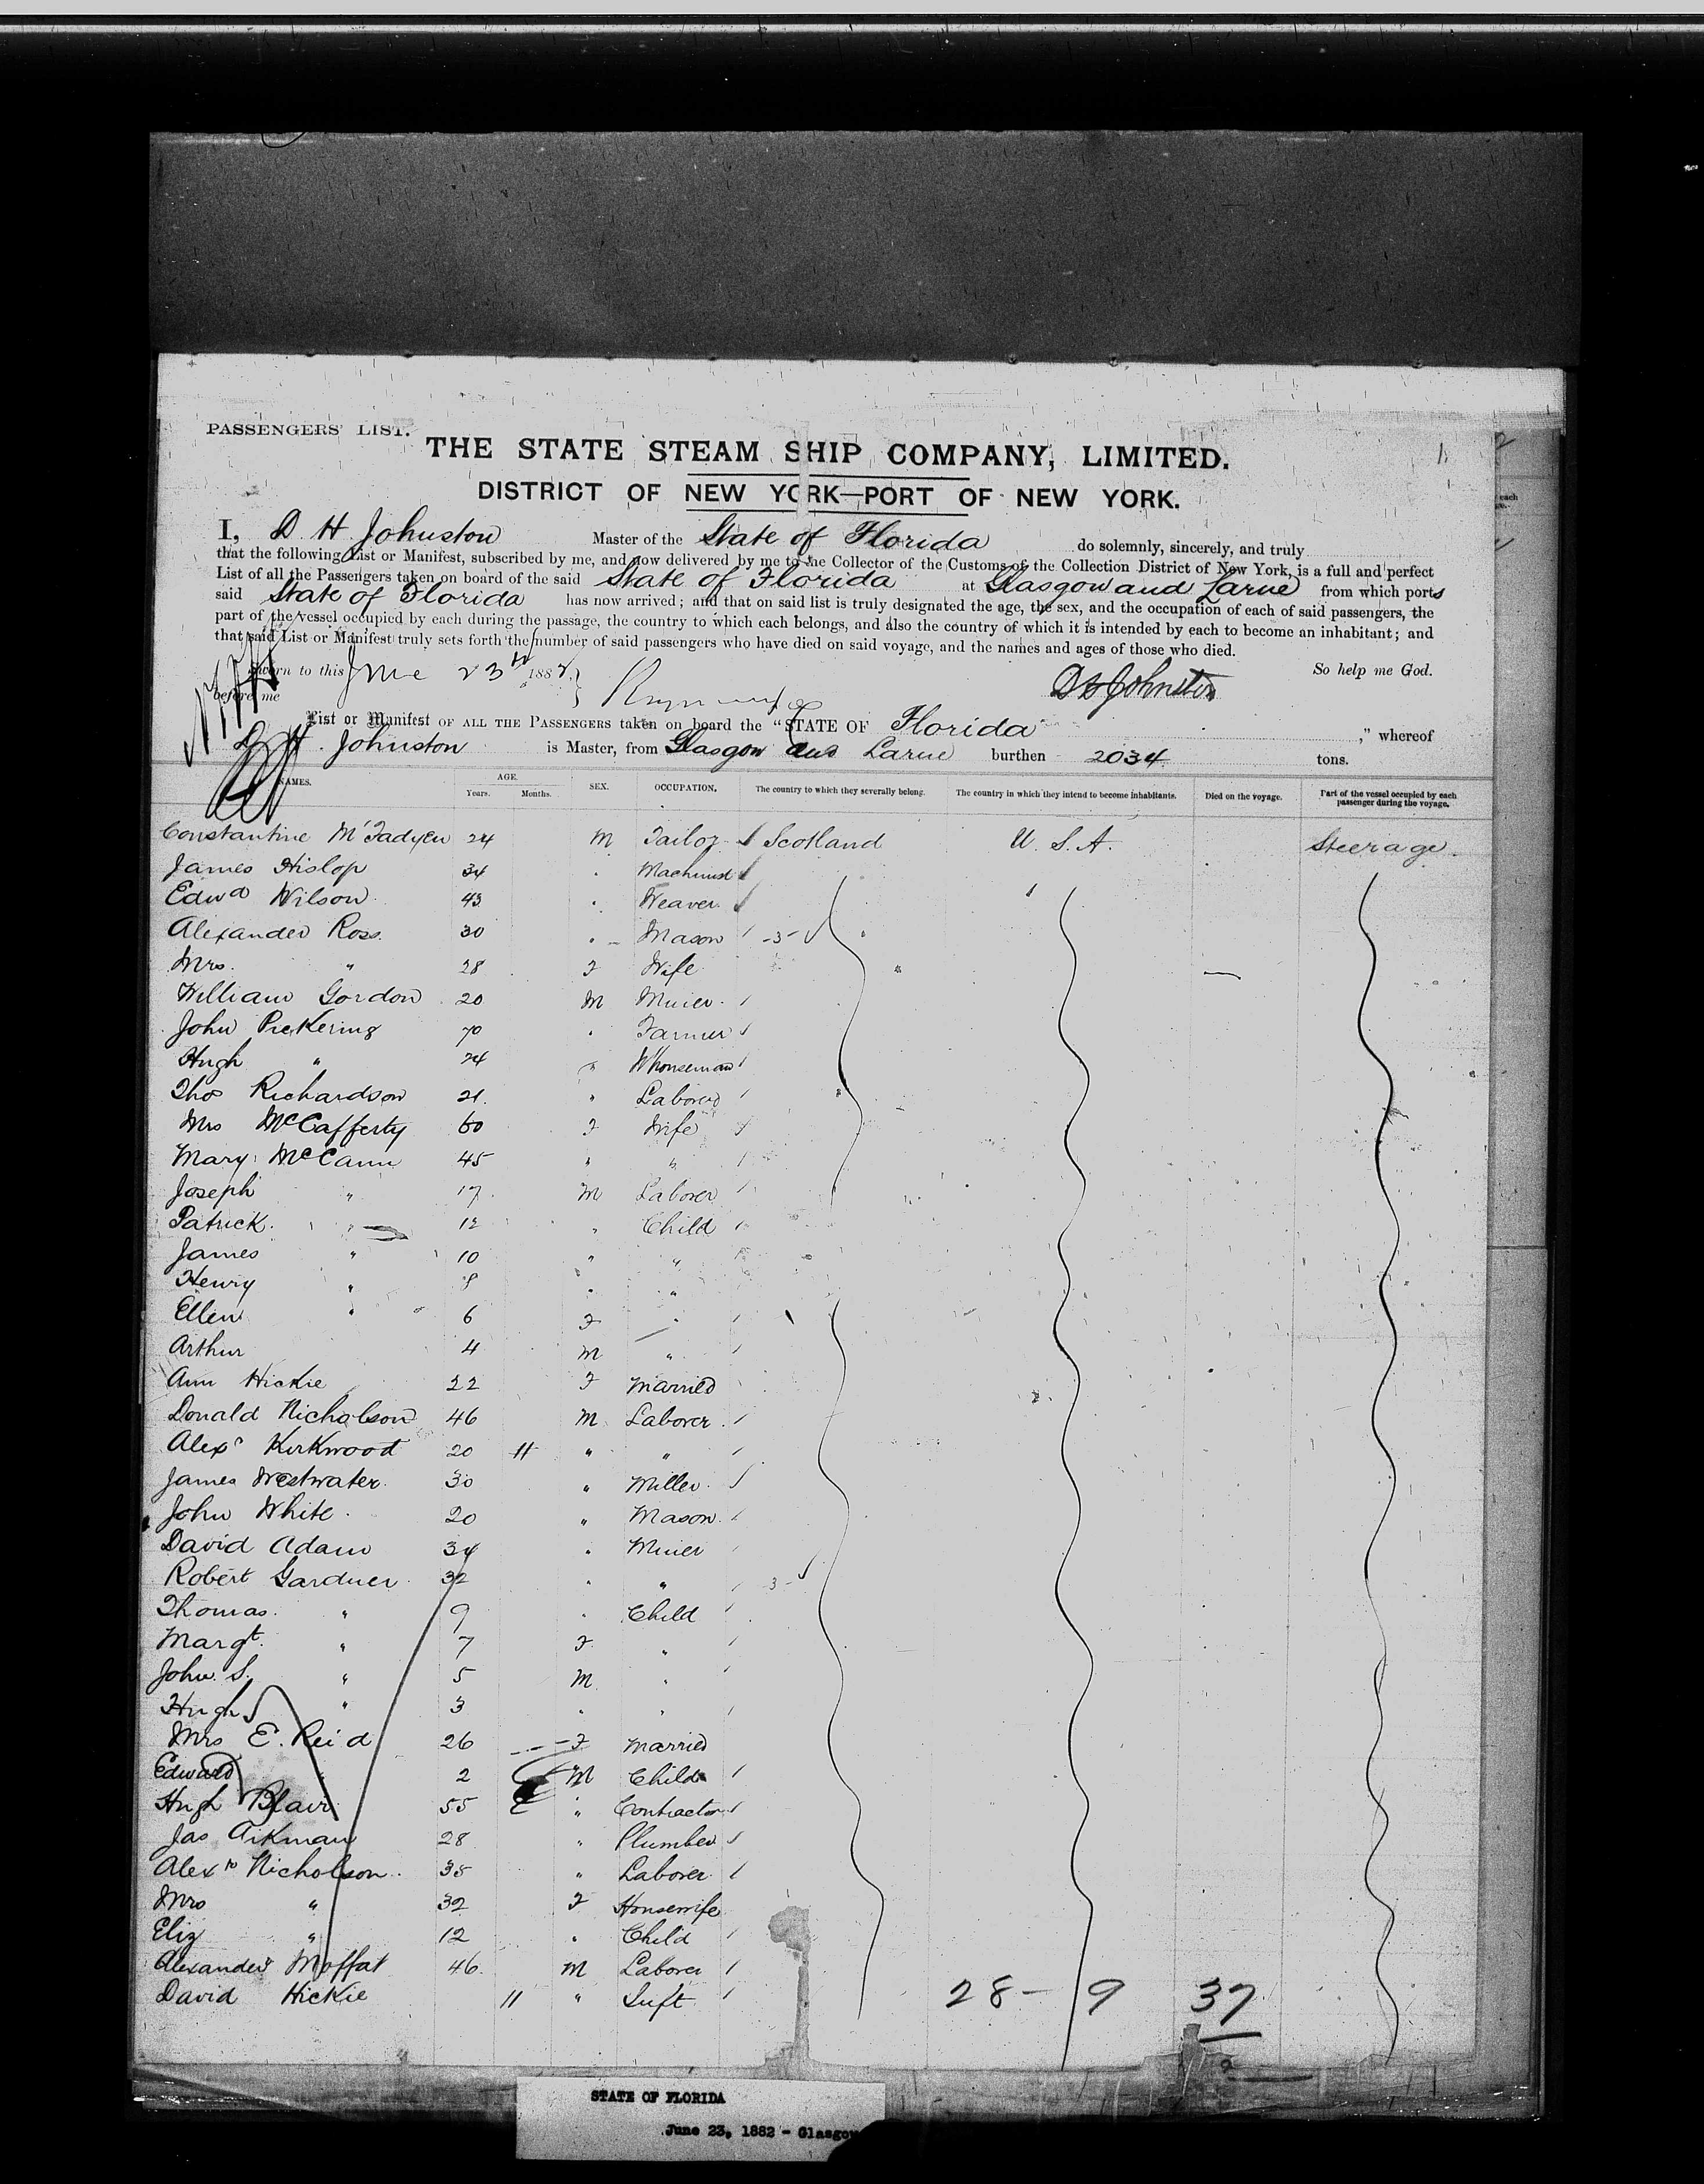 PASSENGERS' LIST.
THE STATE STEAM SHIP COMPANY, LIMITED.
DISTRICT OF NEW YORK—PORT OF NEW YORK.
I, D. H Johnston Master of the State of Florida do solemnly, sincerely, and truly
that the following List or Manifest, subscribed by me, and now delivered by me to the Collector of the Customs of the Collection District of New York, is a full and perfect
List of all the Passengers taken on board of the said State of Florida at Glasgow and Larne from which ports
said State of Florida has now arrived; and that on said list is truly designated the age, the sex, and the occupation of each of said passengers, the
part of the vessel occupied by each during the passage, the country to which each belongs, and also the country of which it is intended by each to become an inhabitant; and
that said List or Manifest truly sets forth the number of said passengers who have died on said voyage, and the names and ages of those who died.
Sworn to this June 23rd 1882 So help me God.
before me D H Johnston
List or Manifest OF ALL THE PASSENGERS taken on board the "STATE OF Florida ," whereof
D. H. Johnston is Master, from Glasgow and Larne burthen 2034 tons.
NAMES. AGE. Years. Months. SEX. OCCUPATION. The country to which they severally belong. The country in which they intend to become inhabitants. Died on the voyage. Part of the vessel occupied by each passenger during the voyage.
Constantine McFadyen 24 M Tailor Scotland U. S. A. Steerage
James Hislop 34 Machinist
Edwd Wilson 43 Weaver
Alexander Ross 30 Mason -3-
Mrs. " 28 F Wife
William Gordon 20 M Miner
John Pickering 70 Farmer
Hugh " 24 " Whouseman
Thos Richardson 21 " Laborer
Mrs McCafferty 60 F Wife
Mary McCann 45 " "
Joseph " 17 M Laborer
Patrick " 12 " Child
James " 10 " "
Henry " 8 " "
Ellen " 6 F "
Arthur 4 M "
Ann Hickie 22 F Married
Donald Nicholson 46 M Laborer
Alexr Kirkwood 20 11 " "
James Westwater 30 " Miller
John White 20 " Mason
David Adam 34 " Miner
Robert Gardner 32 " " 3-
Thomas " 9 " Child
Margt. " 7 F "
John S. " 5 M "
Hugh " 3 " "
Mrs E. Reid 26 F Married
Edward 2 M Child
Hugh Blair 55 " Contractor
Jas Aikman 28 " Plumber
Alexr Nicholson 35 " Laborer
Mrs " 32 F Housewife
Eliz " 12 " Child
Alexander Moffat 46 M Laborer
David Hickie 11 " Inft
28- 9 37
STATE OF FLORIDA
June 23, 1882 - Glasgow